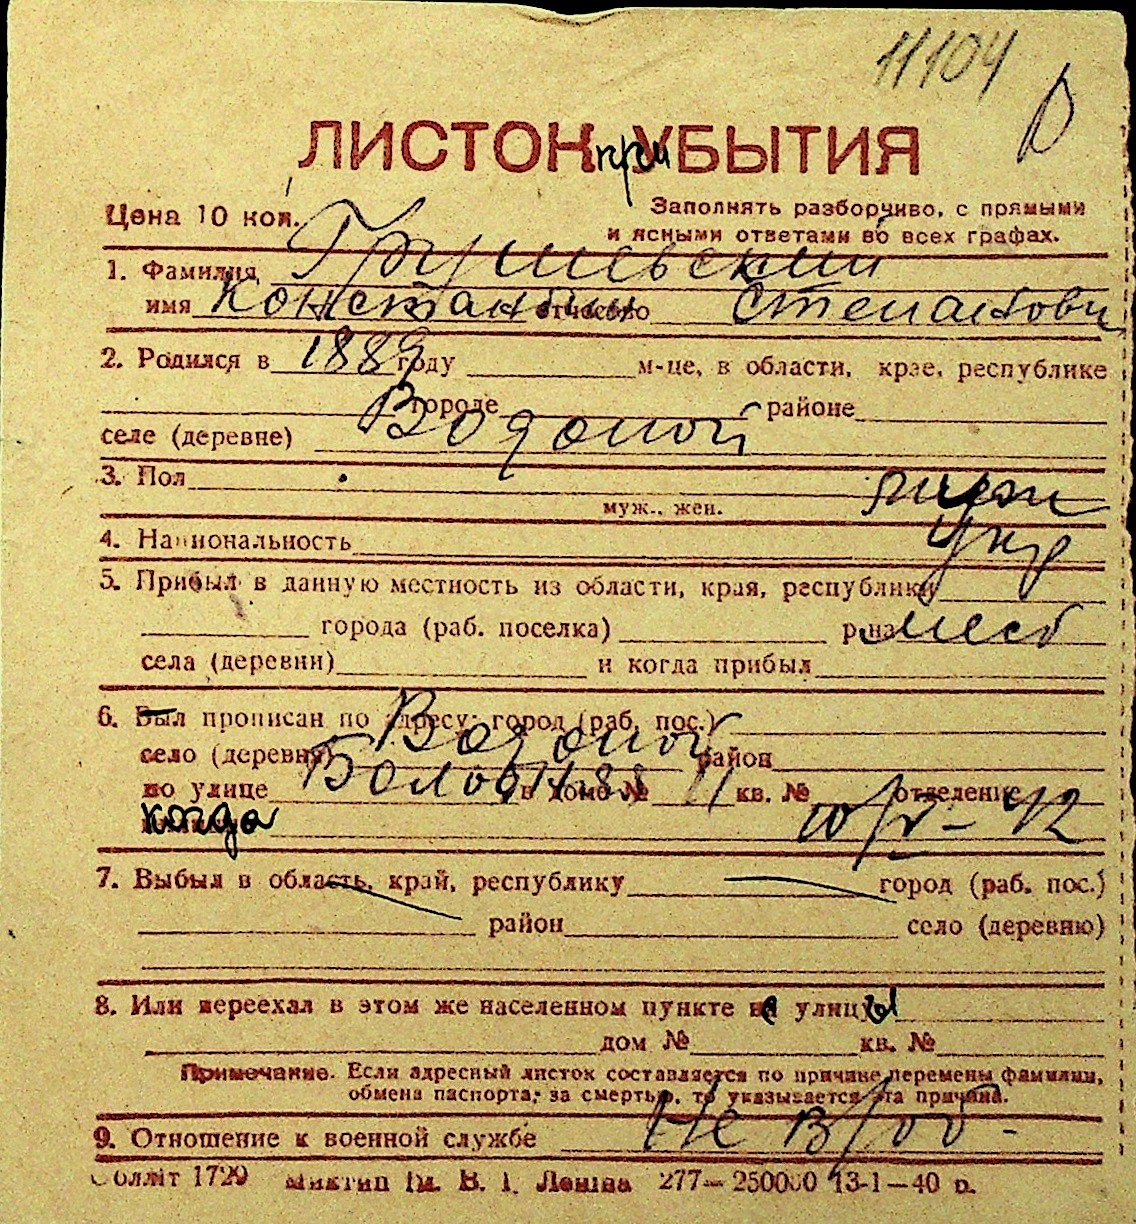 11104
ЛИСТОК при УБЫТИЯ
Цена 10 коп.
Заполнять разборчиво, с прямыми
и ясными ответами во всех графах.
1. Фамилия Грушевский
имя Константин отчество Степанович
2. Родился в 1889 году м-це, в области, крае, республике
городе районе
селе (деревне) Водопой
3. Пол муж
муж., жен.
4. Национальность укр
5. Прибыл в данную местность из области, края, республики
города (раб. поселка) р-на мест
села (деревни) и когда прибыл
6. Был прописан по адресу: город (раб. пос.)
село (деревня) Водопой район
по улице в доме № 11 кв. № отделение
когда 10/V-42
7. Выбыл в область, край, республику город (раб. пос.)
район село (деревню)
8. Или переехал в этом же населенном пункте на улицы
дом № кв. №
Примечание. Если адресный листок составляется по причине перемены фамилии,
обмена паспорта, за смертью, то указывается эта причина.
9. Отношение к военной службе Не в/об-
Обллiт 1729 Миктип Iм. В. I. Ленiна 277—250000 13-1—40 р.